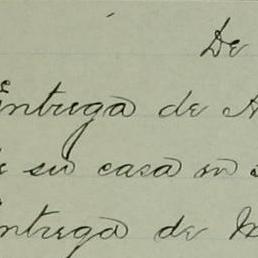 De
Entrega de A
de su casa en s
Entrega de M